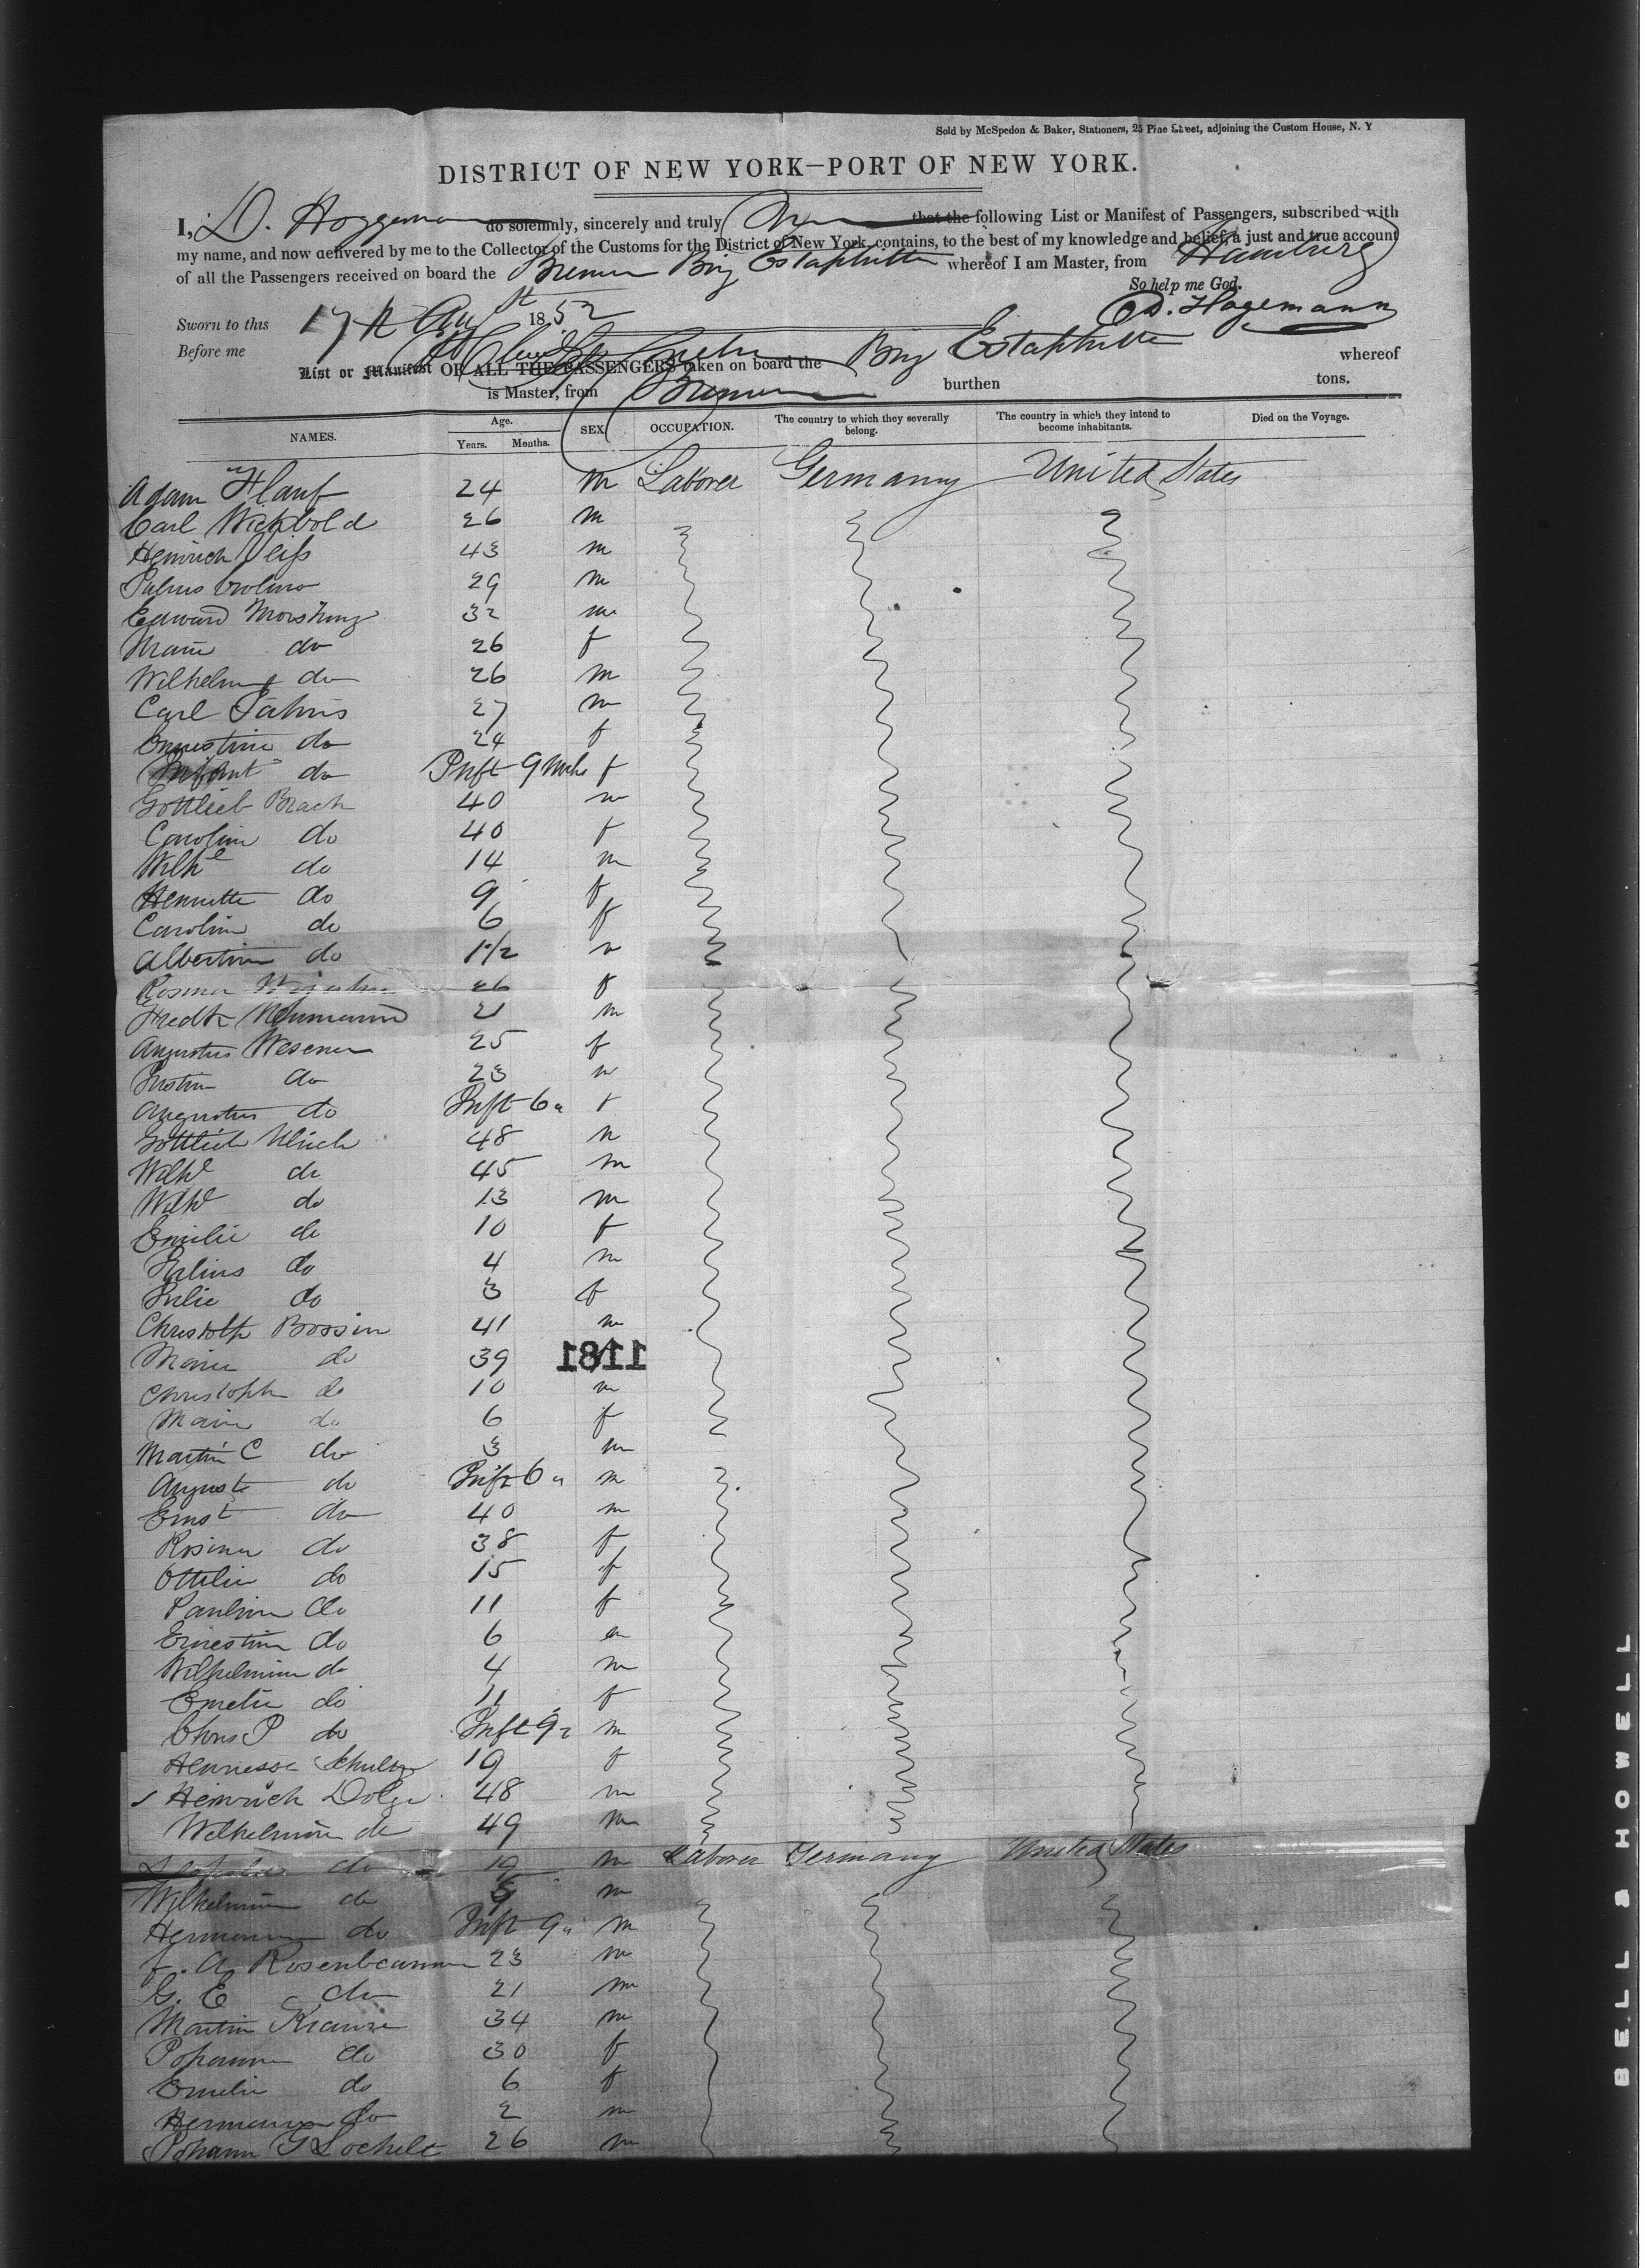 Sold by McSpedon & Baker, Stationers, 25 Pine Street, adjoining the Custom House, N. Y
DISTRICT OF NEW YORK—PORT OF NEW YORK.
I, D. Hoggeman do solemnly, sincerely and truly that the following List or Manifest of Passengers, subscribed with
my name, and now delivered by me to the Collector of the Customs for the District of New York, contains, to the best of my knowledge and belief, a just and true account
of all the Passengers received on board the Bremen Brig whereof I am Master, from Hamburg
So help me God.
Sworn to this 17th Augst 1852 D. Hagemann
Before me
List or Manifest OF ALL THE PASSENGERS taken on board the Brig whereof
is Master, from Bremen burthen tons.
NAMES. Age. Years. Months. SEX OCCUPATION. The country to which they severally belong. The country in which they intend to become inhabitants. Died on the Voyage.
Adam Hauf 24 m Laborer Germany United States
Carl Wichbold 26 m
Heinrich 43 m
29 m
Edward 32 m
Marie do 26 f
Wilhelm do 26 m
Carl 27 m
Ernestine do 24 f
Infant do Inft 9 f
Gottlieb Brach 40 m
Carolin do 40 f
Wilhl do 14 m
Henriette do 9 f
Carolin do 6 f
Albertine do 1 1/2 m
Rosina 26 f
Fredk 21 m
Augustus Wesener 25 f
do 23 m
Augustus do Inft 6 " f
Gottlieb Ulrich 48 m
Wilhl do 45 m
Wilhl do 13 m
Emilie do 10 f
Julius do 4 m
Julie do 3 f
Christoph Bossin 41 m
Marie do 39
1181
Christoph do 10 m
Marie do 6 f
Martin C do 3 m
August do Inft 6 " m
Ernst do 40 m
Rosina do 38 f
Ottilie do 15 f
Paulin do 11 f
Ernestin do 6 m
Wilhelmine do 4 m
Emelie do 11 f
Chris P do Inft 9 " m
Schulze 19 f
Heinrich Dolge 48 m
Wilhelmine do 49 m
do 19 m Laborer Germany United States
Wilhelmine do m
Hermann do Inft 9 " m
F. A. Rosenbaum 23 m
G. E do 21 m
Martin Krause 34 m
Johanna do 30 f
Emilie do 6 f
Hermann do 2 m
Johann G Lochelt 26 m
BELL & HOWELL